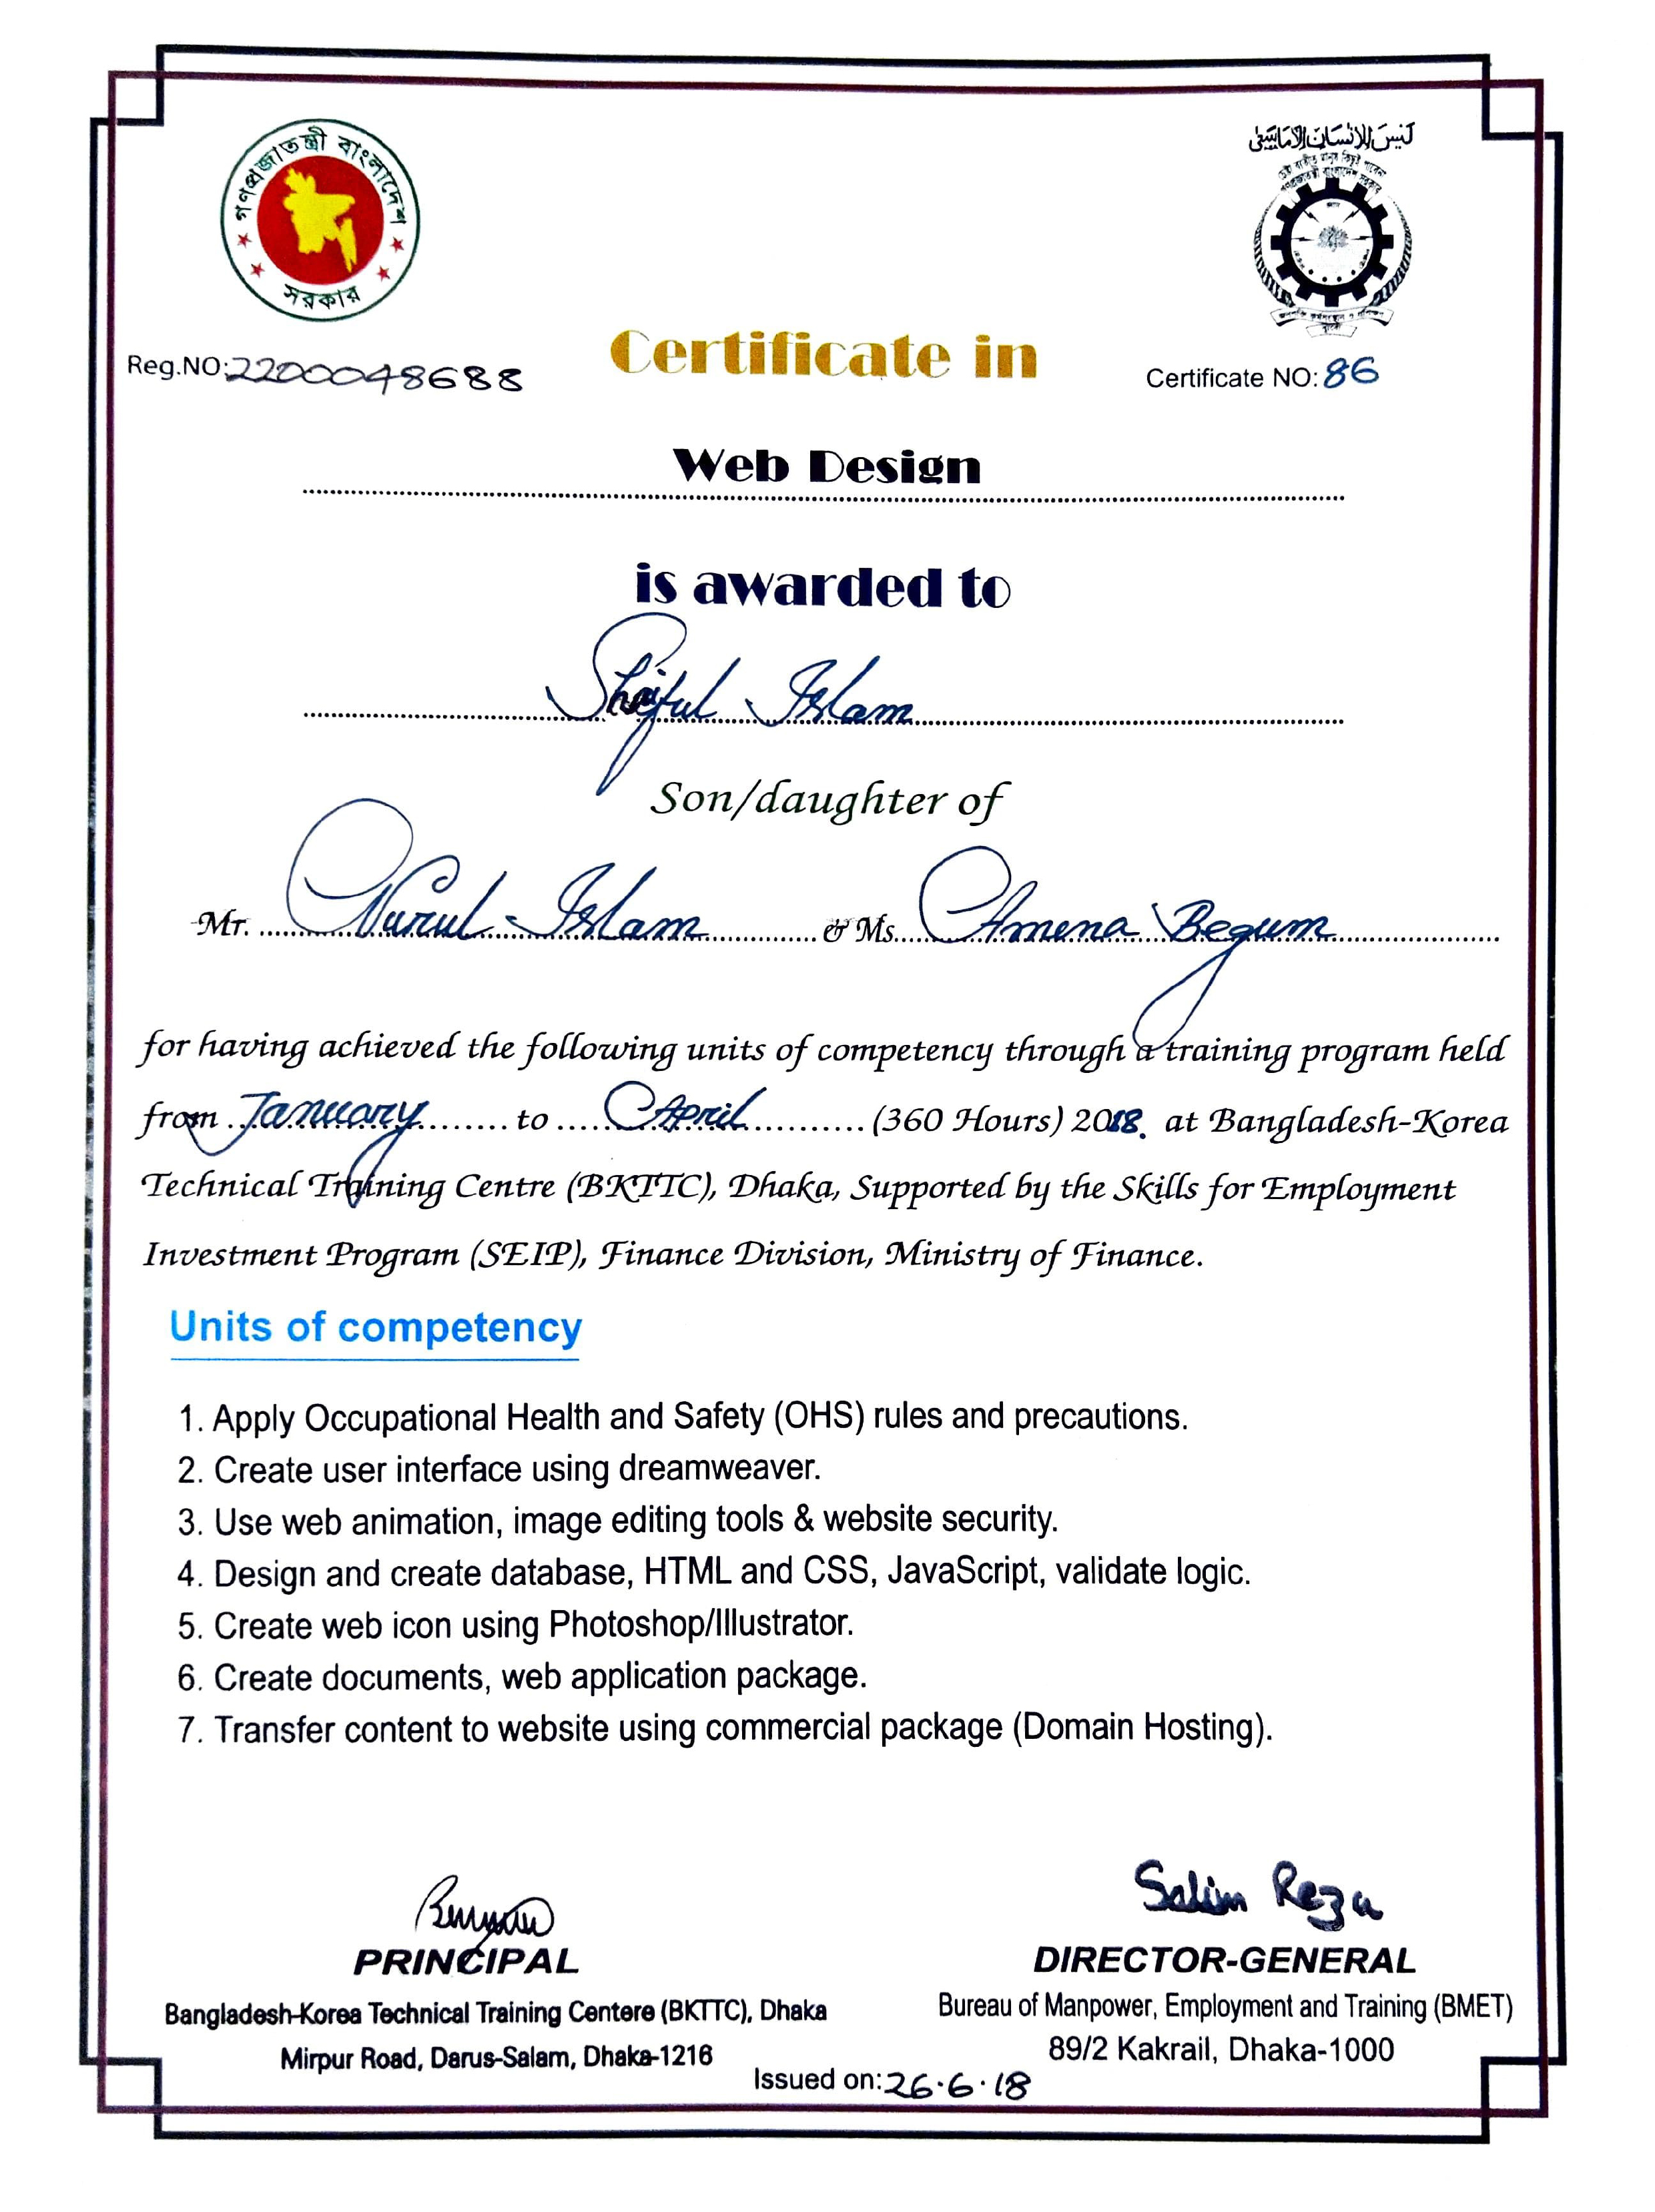 গণপ্রজাতন্ত্রী বাংলাদেশ
সরকার
Reg.NO: 2200048688
Certificate in
Certificate NO: 86
Web Design
is awarded to
Shaiful Islam
Son/daughter of
Mr. Nurul Islam & Ms. Amena Begum
for having achieved the following units of competency through a training program held
from January to April (360 Hours) 2018. at Bangladesh-Korea
Technical Training Centre (BKTTC), Dhaka, Supported by the Skills for Employment
Investment Program (SEIP), Finance Division, Ministry of Finance.
Units of competency
1. Apply Occupational Health and Safety (OHS) rules and precautions.
2. Create user interface using dreamweaver.
3. Use web animation, image editing tools & website security.
4. Design and create database, HTML and CSS, JavaScript, validate logic.
5. Create web icon using Photoshop/Illustrator.
6. Create documents, web application package.
7. Transfer content to website using commercial package (Domain Hosting).
Salim Reza
PRINCIPAL
DIRECTOR-GENERAL
Bangladesh-Korea Technical Training Centere (BKTTC), Dhaka
Bureau of Manpower, Employment and Training (BMET)
Mirpur Road, Darus-Salam, Dhaka-1216
89/2 Kakrail, Dhaka-1000
Issued on: 26.6.18